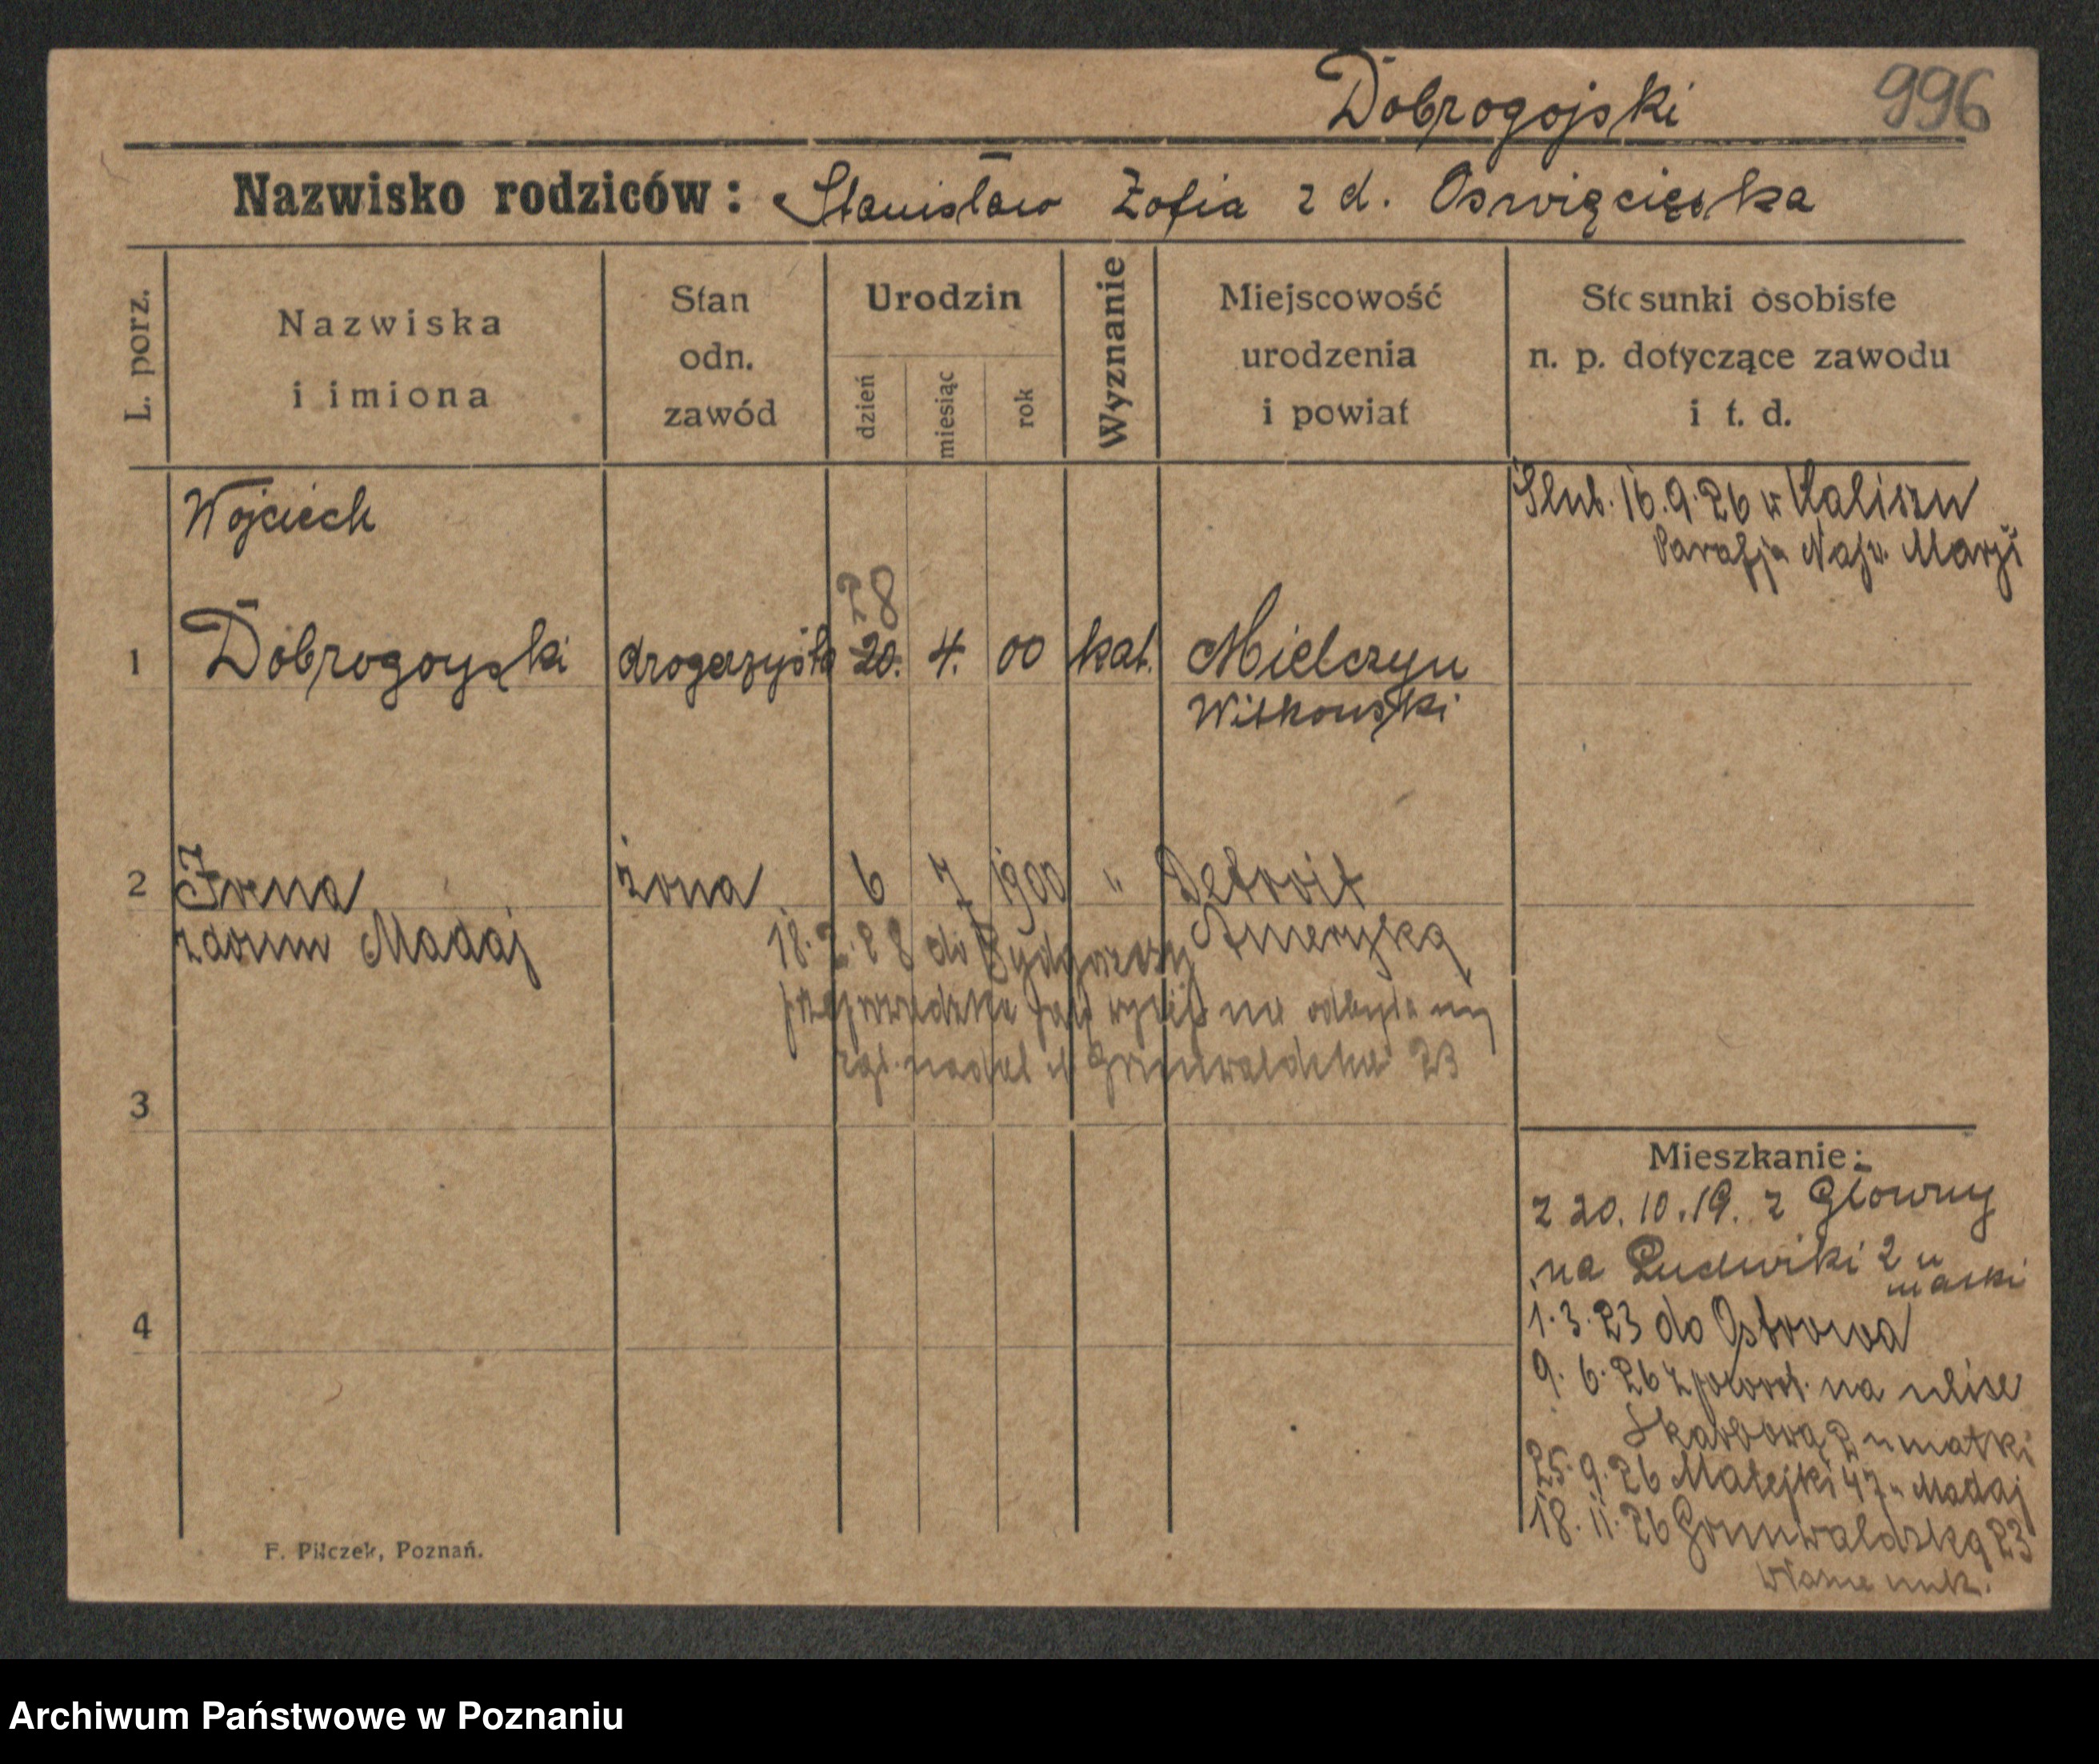 Dobrogojski 996
Nazwisko rodziców: Stanisław Zofia z d. Oswięcięska
L. porz.
Nazwiska
i imiona
Stan
odn.
zawód
Urodzin
dzień
miesiąc
rok
Wyznanie
Miejscowość
urodzenia
i powiat
Stosunki osobiste
n. p. dotyczące zawodu
i t. d.
Wojciech
Ślub. 16.9.26 w Kaliszu
Parafja Najśw. Marji
28
1 Dobrogoyski drogerzysta 20. 4. 00 kat. Mielczyn
Witkowski
2 Irena żona 6 7 1900 " Detroit
z domu Madaj
Ameryka
18.2.28 do Bydgoszczy
przeprowadzka
nie odbyła się
nadal Grunwaldzka 23
3
Mieszkanie:
z 20.10.19. z Główny
na Ludwiki 2 u
matki
4
1.3.23 do Ostrowa
9.6.26 z powrot. na ulice
Skarbową 2 u matki
25.9.26 Matejki 47 u Madaj
18.11.26 Grunwaldzka 23
własne
F. Pilczek, Poznań.
Archiwum Państwowe w Poznaniu